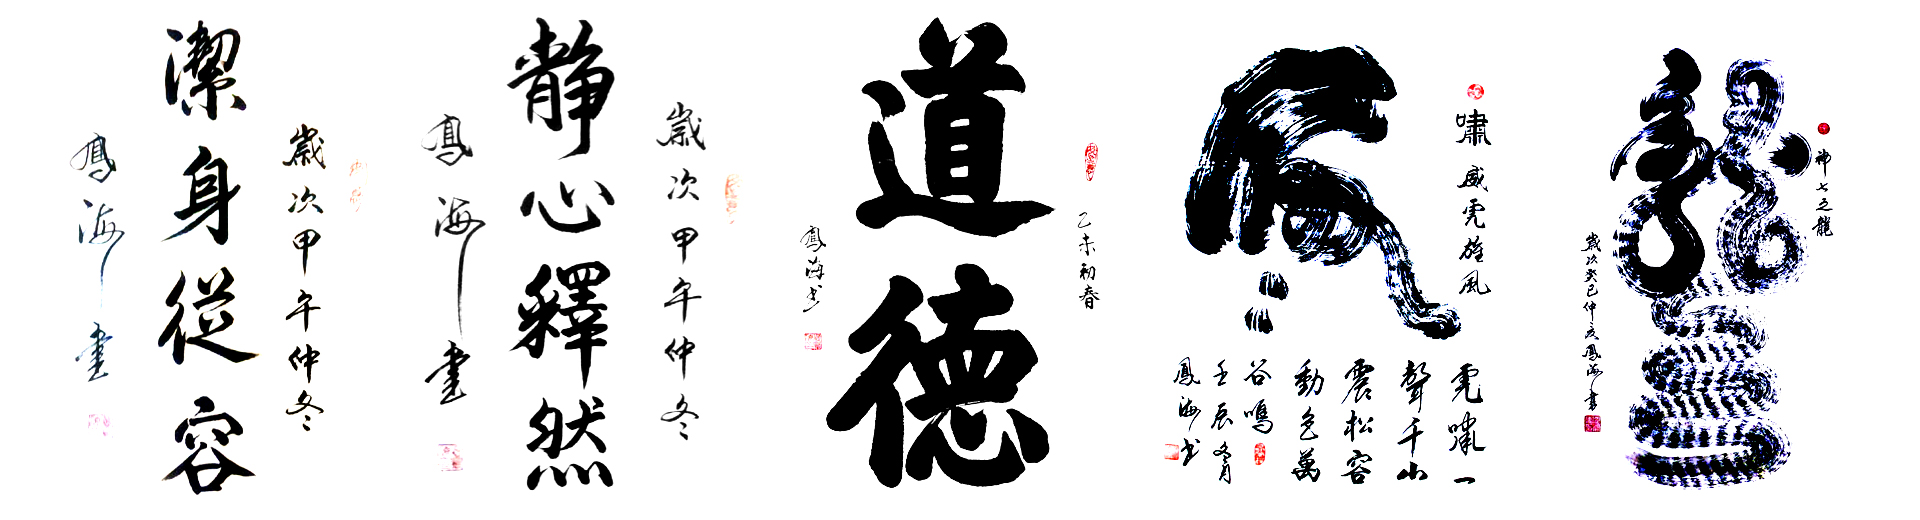 歲次甲午仲冬
潔身從容
鳳海書
歲次甲午仲冬
靜心釋然
鳳海書
乙未初春
道德
鳳海书
嘯威虎雄風
虎
虎嘯一
聲千山
震松容
動色萬
谷鳴
壬辰冬月
鳳海书
神七之龍
龍
歲次癸巳仲夏鳳海書